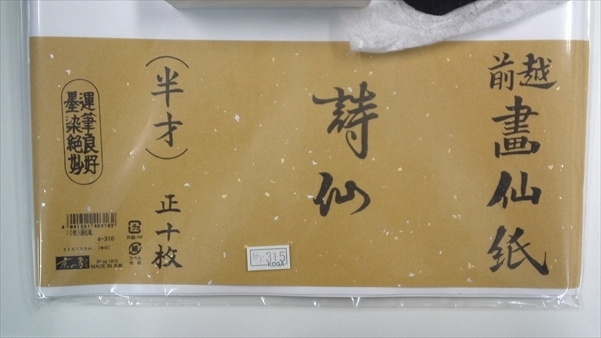 越前
畫仙紙
詩仙
(半才)
正十枚
運筆良好
墨染絶妙
315
KOGA